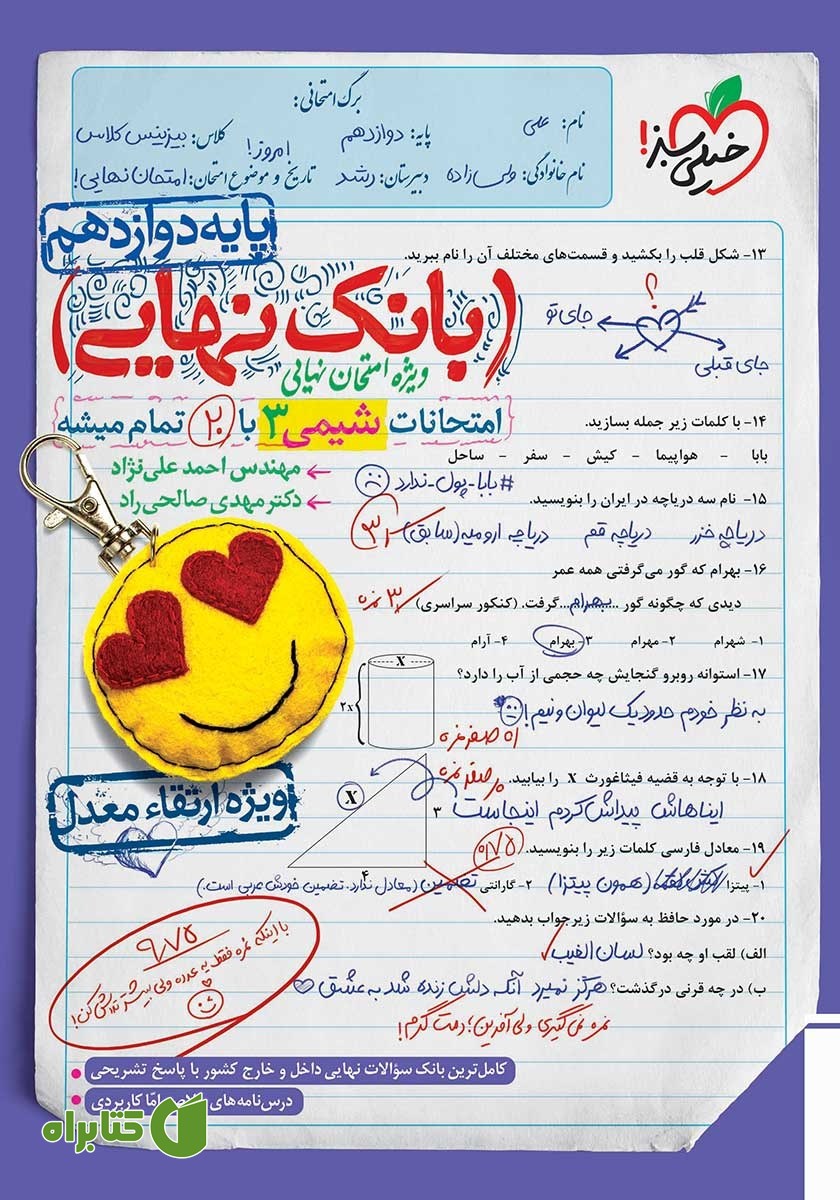 برگ امتحانی:
نام: علی
پایه: دوازدهم
کلاس: بیزینس کلاس
نام خانوادگی: ولی زاده
دبیرستان: رشد
تاریخ و موضوع امتحان: امروز! امتحان نهایی!
خیلی سبز!
پایه دوازدهم
(بانک نهایی)
ویژه امتحان نهایی
امتحانات شیمی ۳ با ۲۰ تمام میشه
مهندس احمد علی‌نژاد
دکتر مهدی صالحی‌راد
۱۳- شکل قلب را بکشید و قسمت‌های مختلف آن را نام ببرید.
؟
جای تو
جای قبلی
۱۴- با کلمات زیر جمله بسازید.
بابا - هواپیما - کیش - سفر - ساحل
#بابا-پول-ندارد
۱۵- نام سه دریاچه در ایران را بنویسید.
دریاچه خزر دریاچه قم دریاچه ارومیه (سابق)
۱۶- بهرام که گور می‌گرفتی همه عمر
دیدی که چگونه گور ...بهرام... گرفت. (کنکور سراسری)
۱- شهرام ۲- مهرام ۳- بهرام ۴- آرام
۱۷- استوانه روبرو گنجایش چه حجمی از آب را دارد؟
X
۲x
به نظر خودم حدود یک لیوان و نیم!
۱۸- با توجه به قضیه فیثاغورث X را بیابید.
X
۳
۴
ایناهاش پیداش کردم اینجاست
۱۹- معادل فارسی کلمات زیر را بنویسید.
۰/۷۵
۱- پیتزا (همون پیتزا) ۲- گارانتی تضمین (معادل ندارد. تضمین خودش عربی است.)
۲۰- در مورد حافظ به سؤالات زیر جواب بدهید.
الف) لقب او چه بود؟ لسان الغیب
ب) در چه قرنی درگذشت؟ هرگز نمیرد آنکه دلش زنده شد به عشق
نمره نمی‌گیری ولی آفرین؛ دمت گرم!
۹/۷۵
با اینکه نمره فقط یه عدده ولی بیشتر تلاش کن!
ویژه ارتقاء معدل
کامل‌ترین بانک سؤالات نهایی داخل و خارج کشور با پاسخ تشریحی
درس‌نامه‌های امّا کاربردی
کتابراه